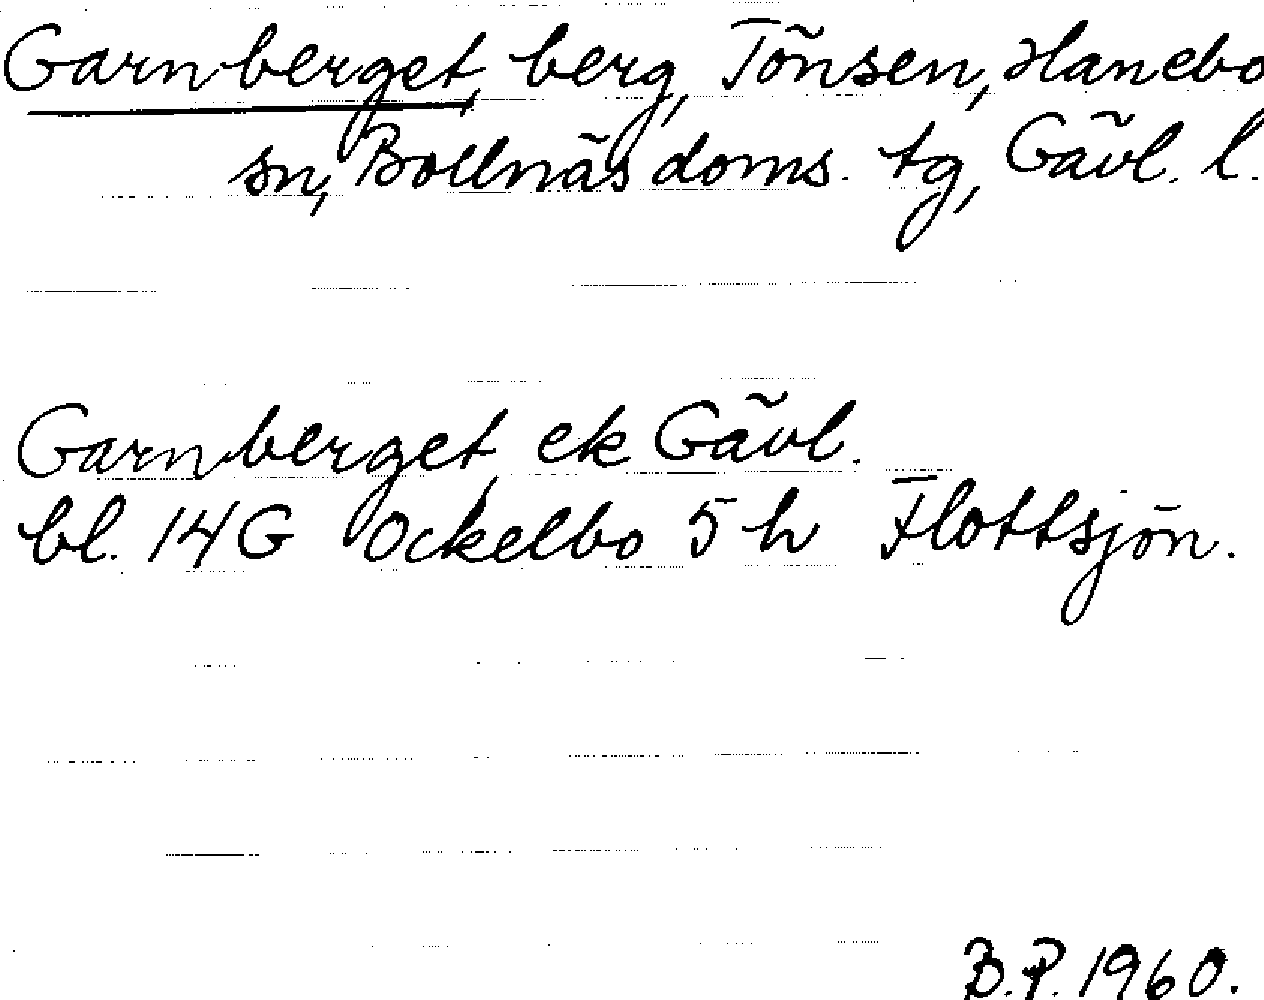 Garnberget, berg, Tönsen, Hanebo
sn, Bollnäs doms. tg, Gävl. l.
Garnberget, ek Gävl.
bl. 14G Ockelbo 5 h Flottsjön.
B.P. 1960.